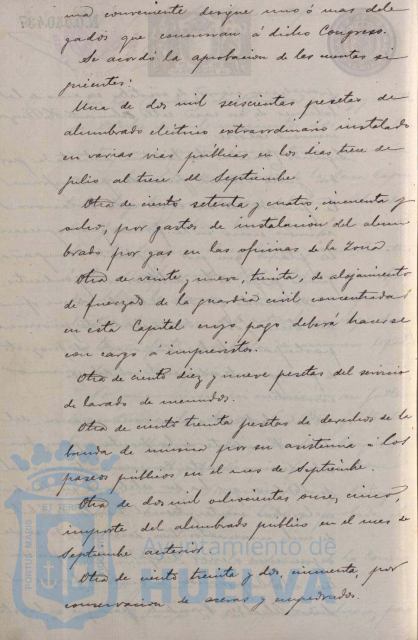 conveniente designe uno ó mas dele
gados que concurran á dicho Congreso.
Se acordó la aprobacion de las cuentas si
guientes:
Una de dos mil seiscientas pesetas de
alumbrado eléctrico extraordinario instalado
en varias vias públicas en los dias trece de
julio al trece de Septiembre
Otra de ciento setenta y cuatro, cincuenta y
ocho, por gastos de instalacion del alum
brado por gas en las oficinas de la Zona.
Otra de veinte y nueve, treinta, de alojamiento
de fuerzas de la guardia civil concentradas
en esta Capital cuyo pago deberá hacerse
con cargo á imprevistos.
Otra de ciento diez y nueve pesetas del servicio
de lavado de menudos.
Otra de ciento treinta pesetas de derechos de la
banda de música por su asistencia á los
paseos públicos en el mes de Septiembre.
Otra de dos mil ochocientas once, cinco,
importe del alumbrado público en el mes de
Septiembre anterior
Otra de ciento treinta y dos cincuenta, por
conservacion de aceras y empedrados.
Ayuntamiento de
HUELVA